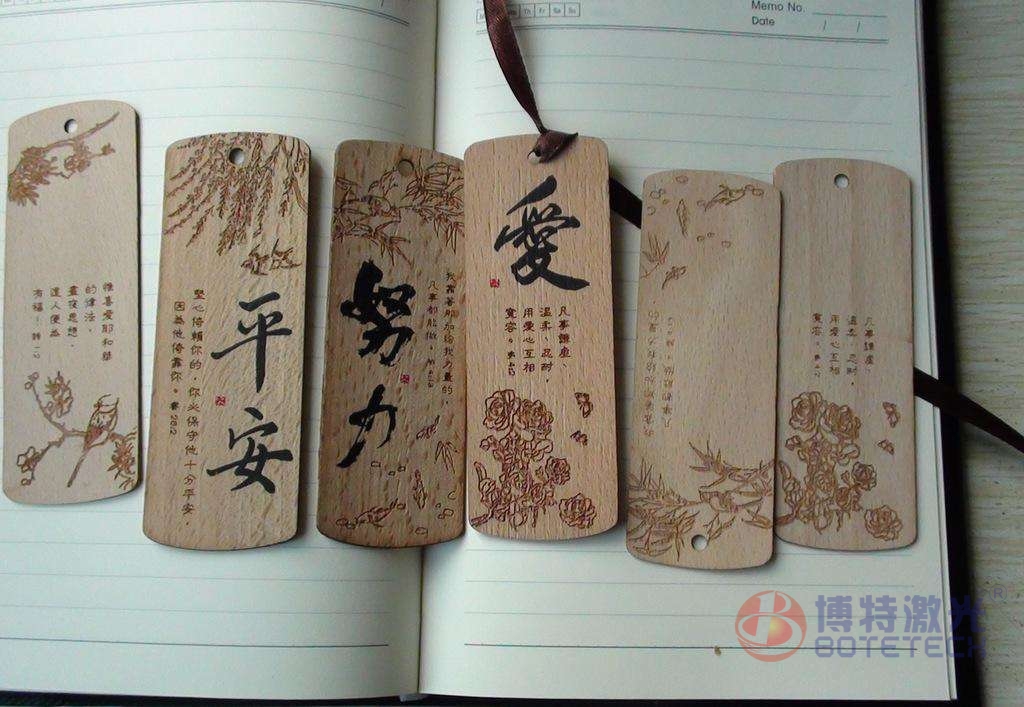 Memo No.
Date / /
Th Fr Sa Su
惟喜愛耶和華
的律法，
晝夜思想，
這人便為
有福！
平安
堅心倚賴你的，你必保守他十分平安，
因為他倚靠你。賽
努力
我靠著那加給我力量的，
凡事都能做。
愛
凡事謙虛、
溫柔、忍耐，
用愛心互相
寬容。
凡事謙虛、
溫柔、忍耐，
用愛心互相
寬容。
博特激光
BOTETECH